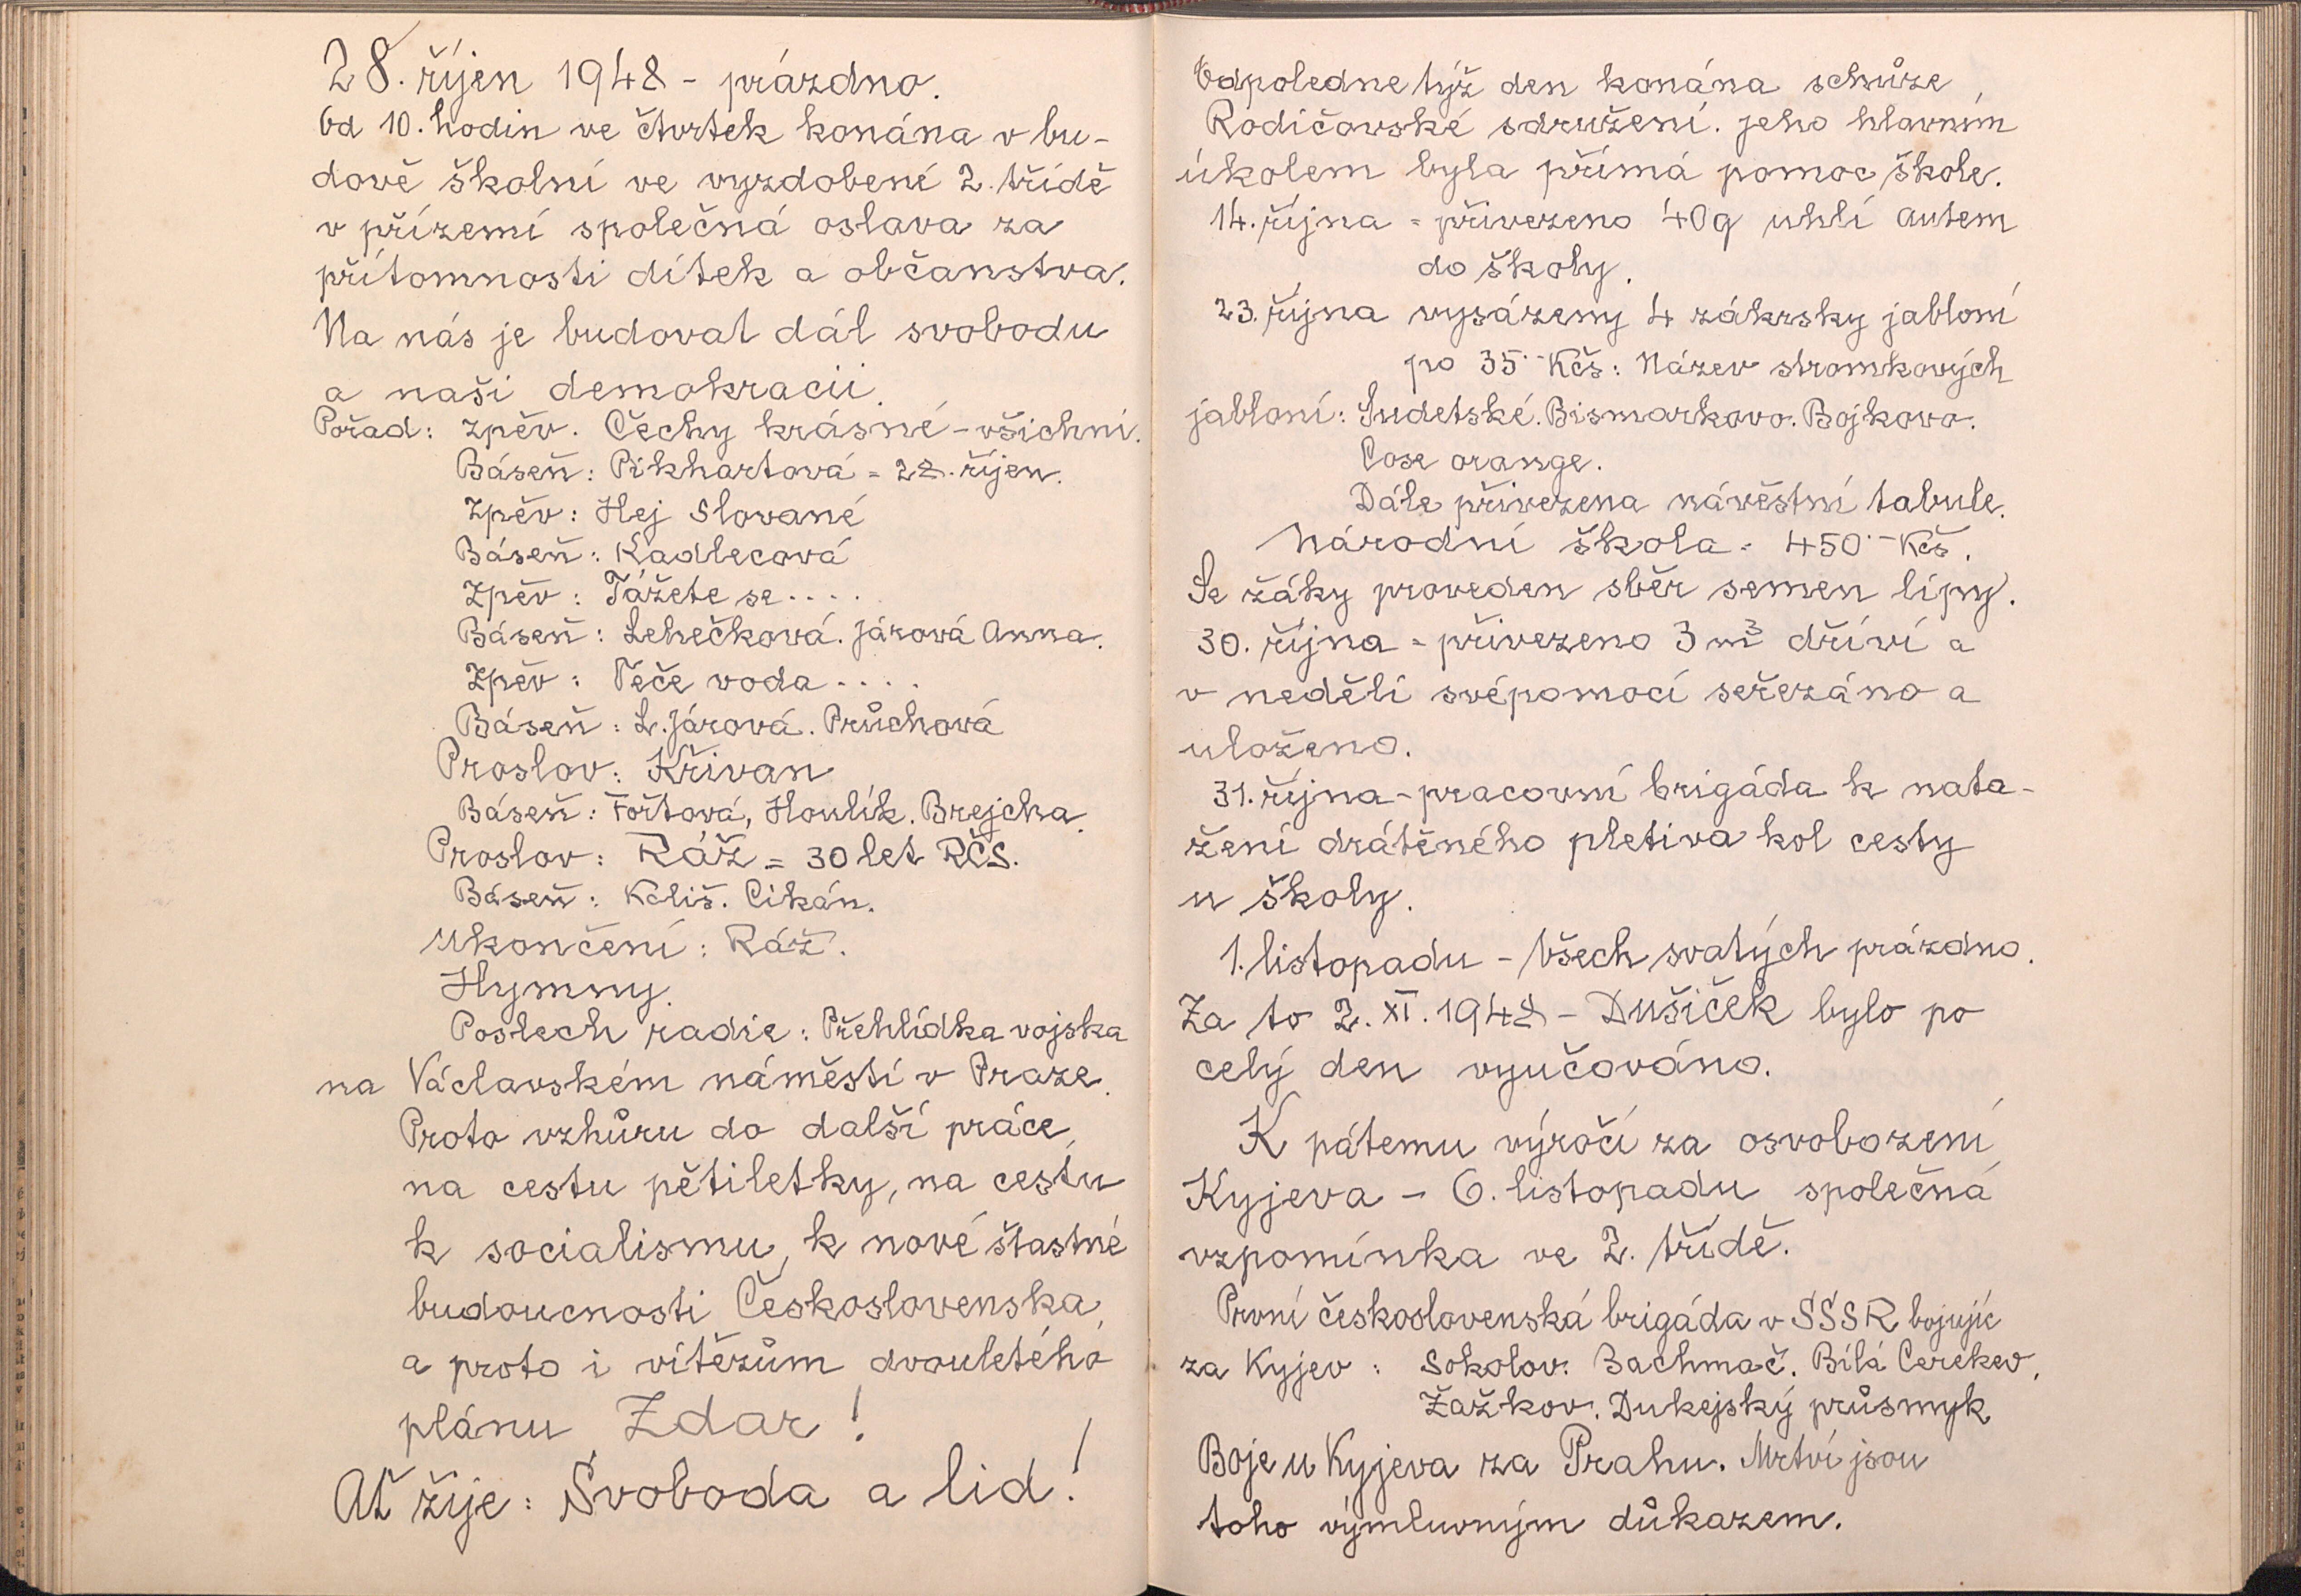 28. říjen 1948 - prázdno.
Od 10. hodin ve čtvrtek konána v bu-
dově školní ve vyzdobené 2. třídě
v přízemí společná oslava za
přítomnosti dítek a občanstva.
Na nás je budovat dál svobodu
a naši demokracii.
Pořad: Zpěv. Čechy krásné - všichni.
Báseň: Pikhartová = 28. říjen.
Zpěv: Hej Slované
Báseň: Kadlecová
Zpěv: Tážete se....
Báseň: Lehečková. Járová Anna.
Zpěv: Teče voda....
Báseň: L. Járová. Průchová
Proslov: Křivan
Báseň: Fořtová, Houlík. Brejcha.
Proslov: Ráž = 30 let RČS.
Báseň: Koliš. Cikán.
Ukončení: Ráž.
Hymny.
Poslech radia: Přehlídka vojska
na Václavském náměstí v Praze.
Proto vzhůru do další práce,
na cestu pětiletky, na cestu
k socialismu, k nové šťastné
budoucnosti Československa,
a proto i vítězům dvouletého
plánu Zdar!
Ať žije: Svoboda a lid!
Odpoledne týž den konána schůze
Rodičovské sdružení. Jeho hlavním
úkolem byla přímá pomoc škole.
14. října = přivezeno 40 q uhlí autem
do školy.
23. října vysázeny 4 zákrsky jabloní
po 35.- Kčs: Název stromkových
jabloní: Sudetské. Bismarkovo. Bojkovo.
Cose orange.
Dále přivezena návěstní tabule.
Národní škola = 450.- Kčs.
Se žáky proveden sběr semen lípy.
30. října = přivezeno 3 m³ dříví a
v neděli svépomocí seřezáno a
uloženo.
31. října - pracovní brigáda k nata-
žení drátěného pletiva kol cesty
u školy.
1. listopadu - Všech svatých prázdno.
Za to 2. XI. 1948 - Dušiček bylo po
celý den vyučováno.
K pátemu výročí za osvobození
Kyjeva - 6. listopadu společná
vzpomínka ve 2. třídě.
První československá brigáda v SSSR bojujíc
za Kyjev: Sokolov. Bachmač. Bílá Cerekev,
Žažkov. Dukejský průsmyk
Boje u Kyjeva za Prahu. Mrtví jsou
toho výmluvným důkazem.